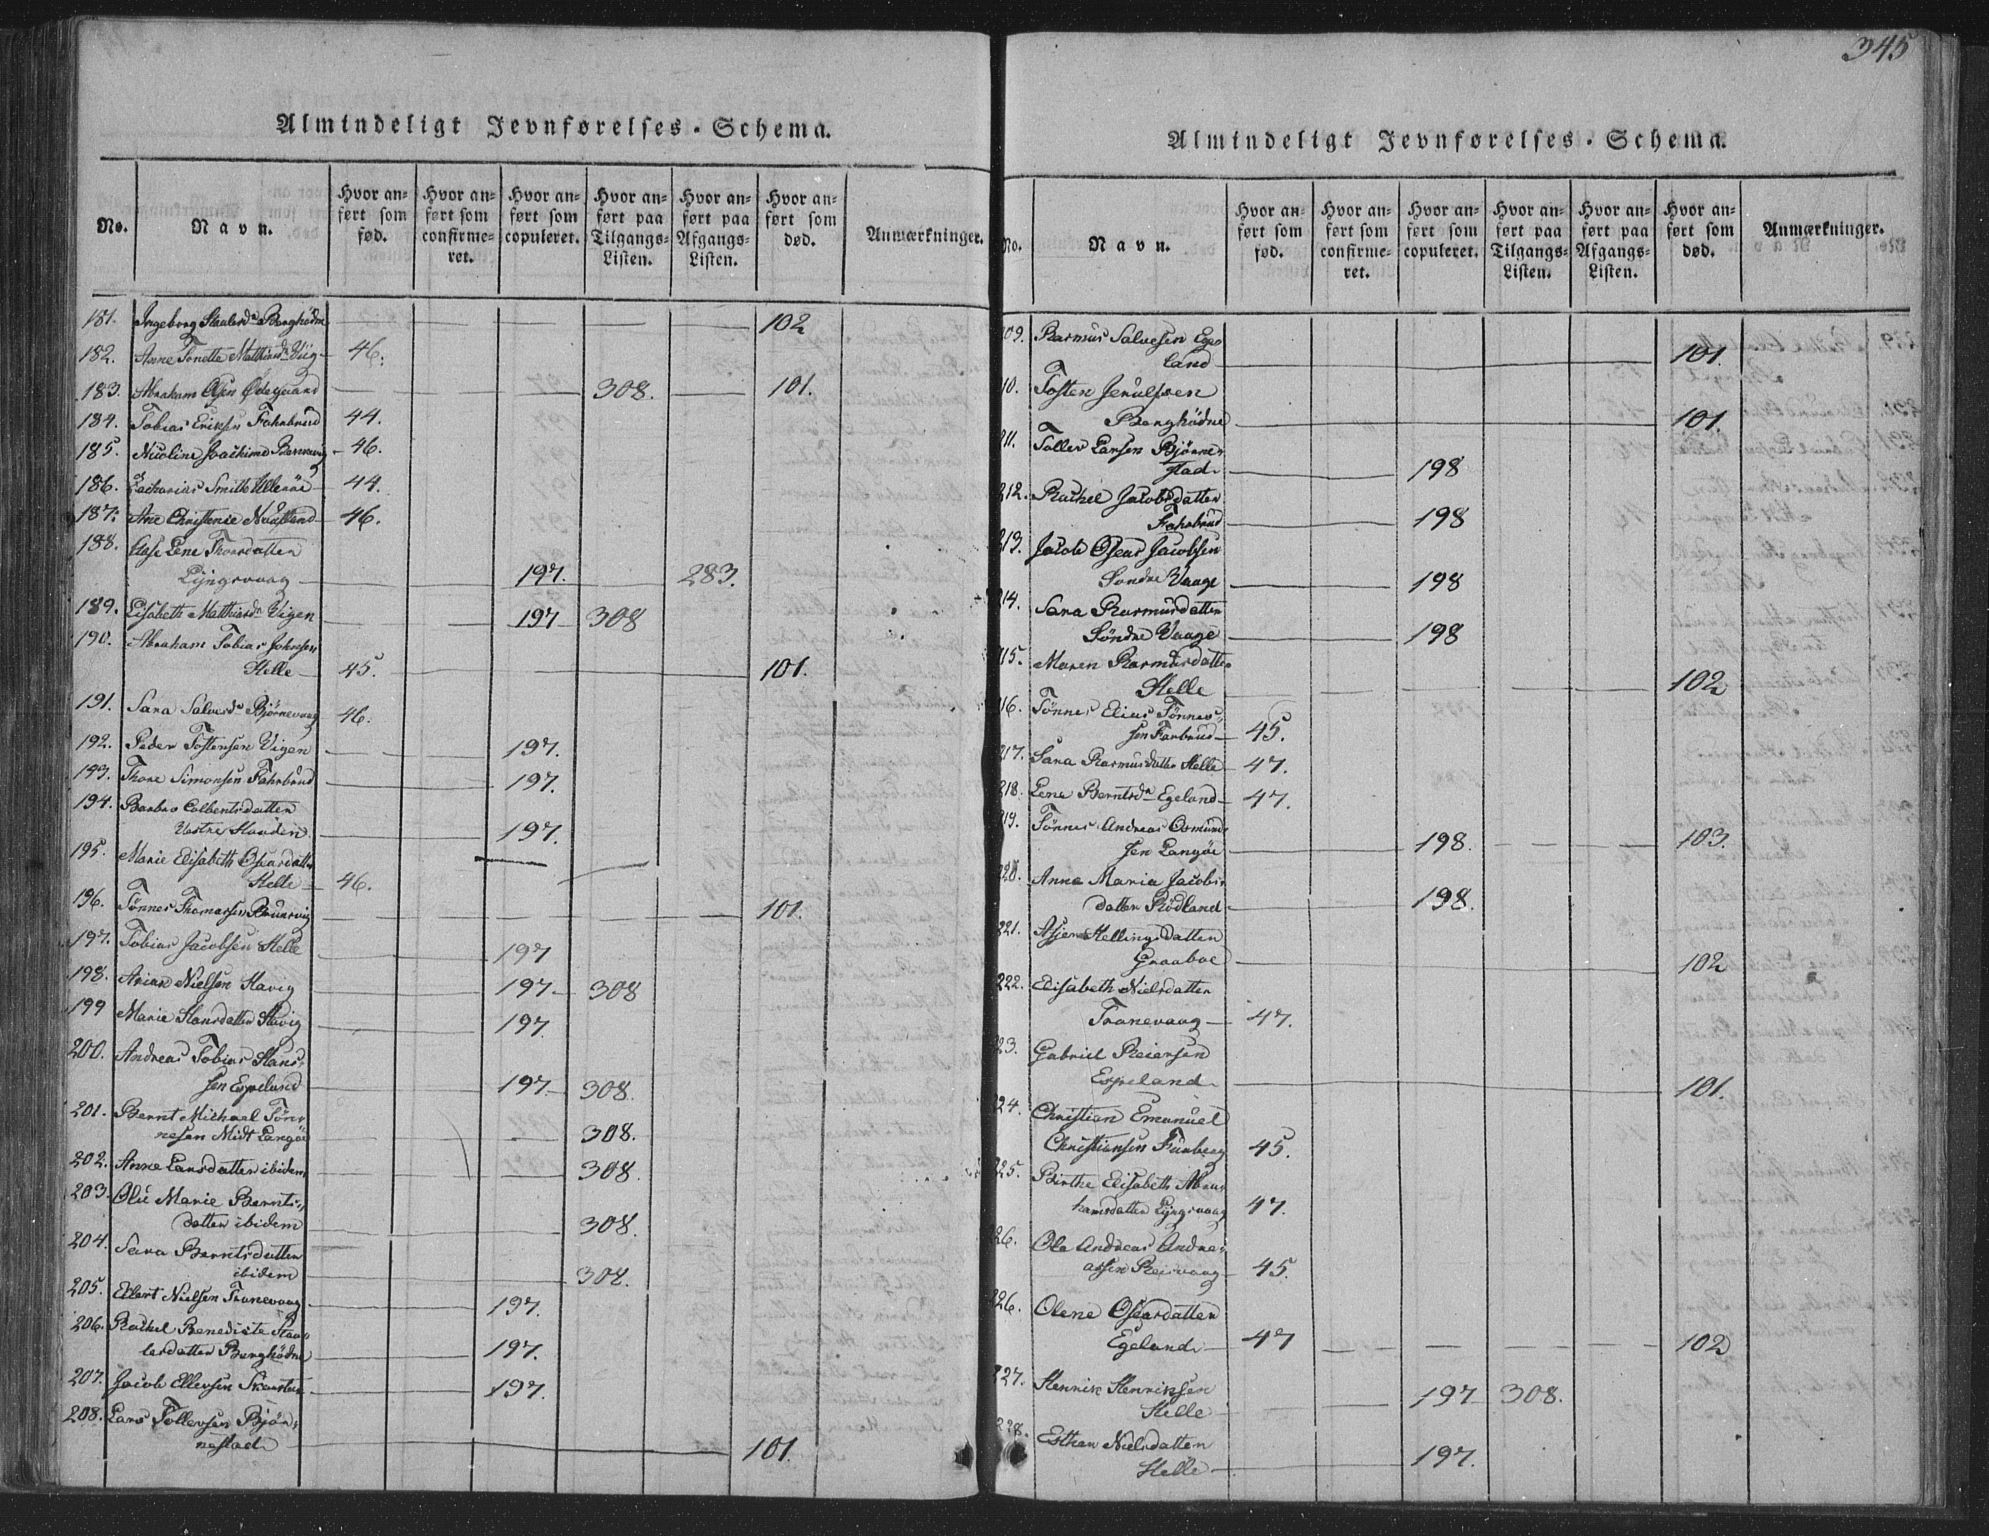 345
Almindeligt Jevnførelses-Schema.
No.
Navn.
Hvor anført som fød.
Hvor anført som confirmeret.
Hvor anført som copuleret.
Hvor anført paa Tilgangs-Listen.
Hvor anført paa Afgangs-Listen.
Hvor anført som død.
Anmærkninger.
181. Ingeborg 102
182. Anne Tonette Mathiasd. Viig 46.
183. Abraham Olsen Ødegaard 308. 101.
184. Tobias Eriksen Fahrbrud 44.
185. Nicoline Joachime 46.
186. Zacharias Smith Ullerøe 44.
187. Ane Christense 46.
188. Else Lene Thorsdatter
Lÿngsvaag 197. 283.
189. Lisabeth Mathiasd. Vigen 197 308
190. Abraham Tobias Johnsen
Helle 45. 101.
191. Sara Salvesd. Bjørnevaag 46.
192. Peder Tostensen Vigen 197.
193. Thore Simonsen Fahrbrud 197.
194. Barbro Colbentsdatter
197.
195. Marie Elisabeth Osearsdatter
Helle 46.
196. Tönnes Thomassen 101.
197. Tobias Jacobsen Helle 197
198. Arian Nielsen Havig 197. 308
199 Marie Hansdatter Havig 197.
200. Andreas Tobias Hans-
sen Espeland 197. 308.
201. Bernt Michael Tøn-
nesen Midt Langøe 308.
202. Anne Larsdatter ibidem 308.
203. Olie Marie Bernts-
datter ibidem 308.
204. Sara Berntsdatter
ibidem 308.
205. Ellert Nielsen Tranevaag 197.
206. Rachel Benedicte
Berghødne 197.
207. Jacob Ellevsen 197.
208. Lars Tollevsen Bjør-
nestad 101.
Almindeligt Jevnførelses-Schema.
No.
Navn.
Hvor anført som fød.
Hvor anført som confirmeret.
Hvor anført som copuleret.
Hvor anført paa Tilgangs-Listen.
Hvor anført paa Afgangs-Listen.
Hvor anført som død.
Anmærkninger.
09. Rasmus Salvesen Ege-
land 101.
10. Tosten Jerulfsen
Berghødne 101.
11. Tollev Larsen Bjørne-
stad 198
212. Rachel Jacobsdatter
Fahrbrud 198
213. Jacob Osear Jacobsen
Sondre Vaage 198
214. Sara Rasmusdatter
Söndre Vaage 198
15. Maren Rasmusdatter
Helle 102
16. Tönnes Elias Tönnes-
sen Farbrud 45.
217. Sara Rasmusdatter Helle 47.
218. Lene Berntsd. Egeland 47.
19. Tönnes Andreas Osmund-
sen Langöe 198. 103.
220. Anne Maria Jacobs-
datter Rödland 198.
221. Hellingsdatter
Graaboe 102
222. Elisabeth Nielsdatter
Tranevaag 47.
23. Gabriel Reiersen
Espeland 101.
24. Christian Emanuel
Christiansen Fürberg 45.
225. Birthe Elisabeth Abra-
hamsdatter Lÿngsvaag 47.
26. Ole Andreas Andre-
assen Reisvaag 45.
226. Olene Osearsdatter
Egeland 47 102
227. Henrik Henriksen
Helle 197 308.
228. Esther Nielsdatter
Helle 197.